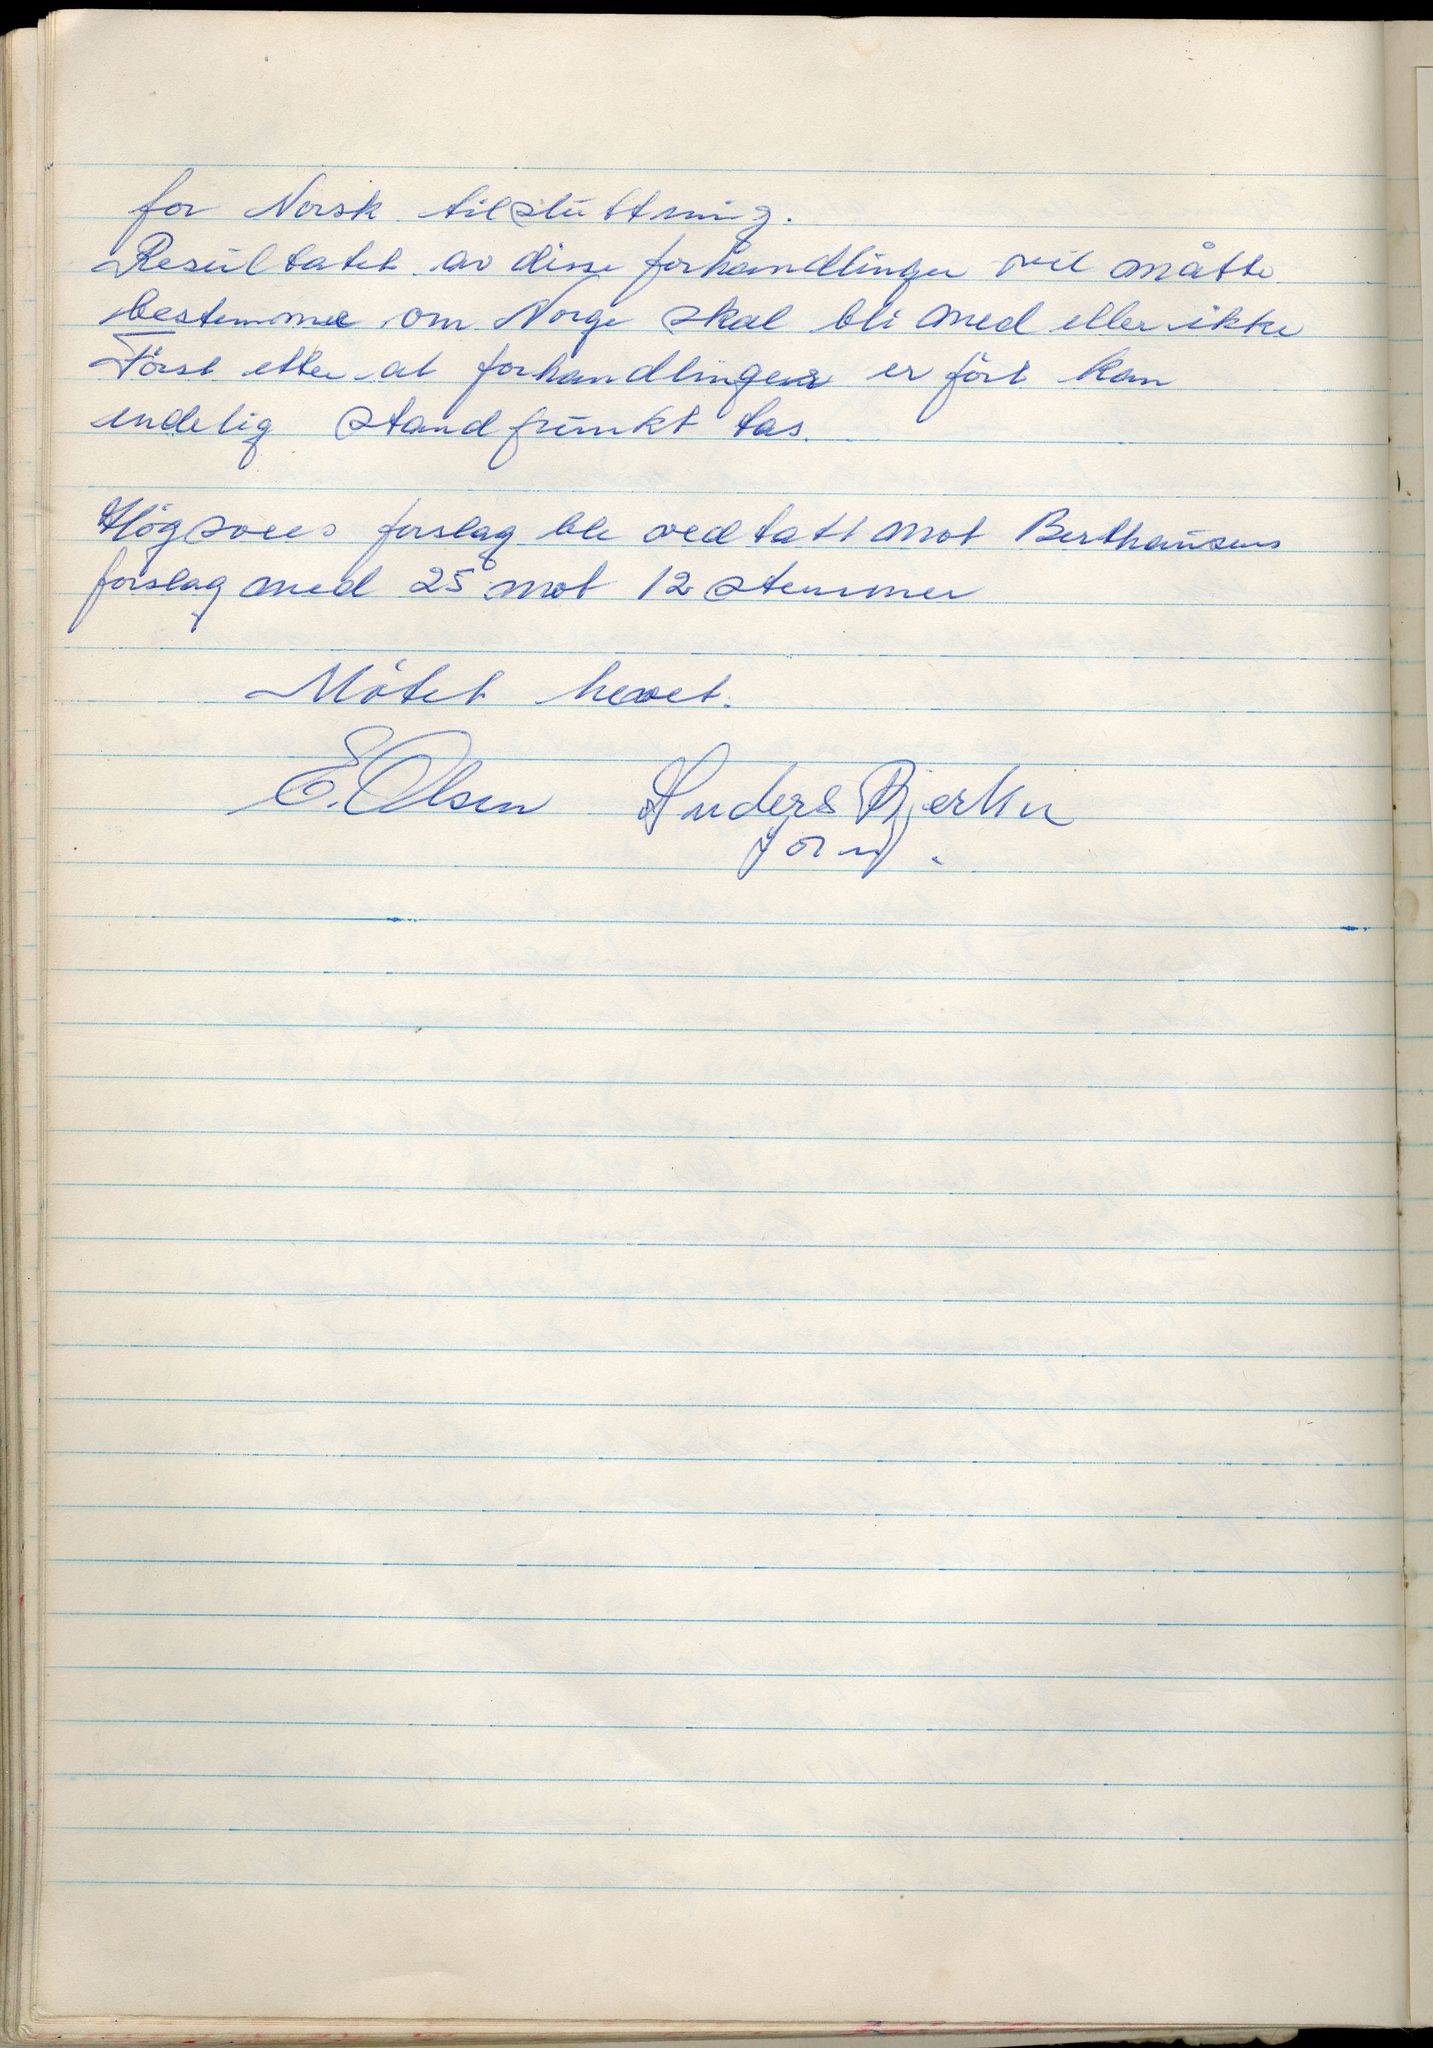 for Norsk tilsluttning.
Resultatet av disse forhandlinger vil måtte
bestemme om Norge skal bli med eller ikke
Först etter at forhandlinger er fört kan
endelig standpunkt tas.
forslag ble vedtatt mot Berthausens
forslag med 25 mot 12 stemmer
Mötet hevet.
E. Olsen Anders Bjerke